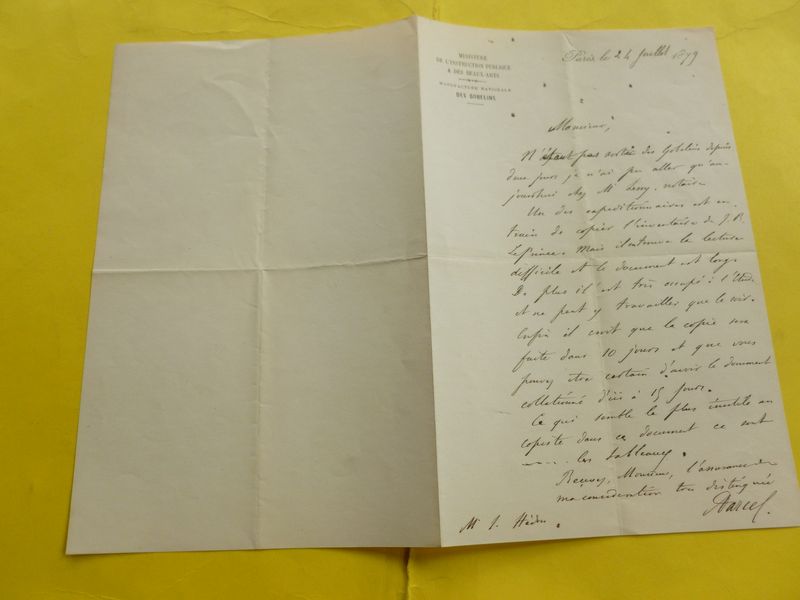 MINISTÈRE
DE L'INSTRUCTION PUBLIQUE
& DES BEAUX-ARTS
MANUFACTURE NATIONALE
DES GOBELINS
Paris le 24 Juillet 1879
Monsieur,
N'étant pas sorti des Gobelins depuis
deux jours je n'ai pu aller qu'au-
jourdhui chez Mr notaire
Un des expeditionnaires est en
train de copier l'inventaire de J. B.
Le Prince. Mais il en trouve la lecture
difficile et le document est long.
De plus il est très occupé à l'Etude
et ne peut y travailler que le soir.
Enfin il croit que la copie sera
faite dans 10 jours et que vous
pouvez être certain d'avoir le document
collationné d'ici à 15 jours.
Ce qui semble le plus inutile au
copiste dans ce document ce sont
les tableaux.
Recevez, Monsieur, l'assurance de
ma consideration très distinguée
Darcel.
Mr J. Hédou